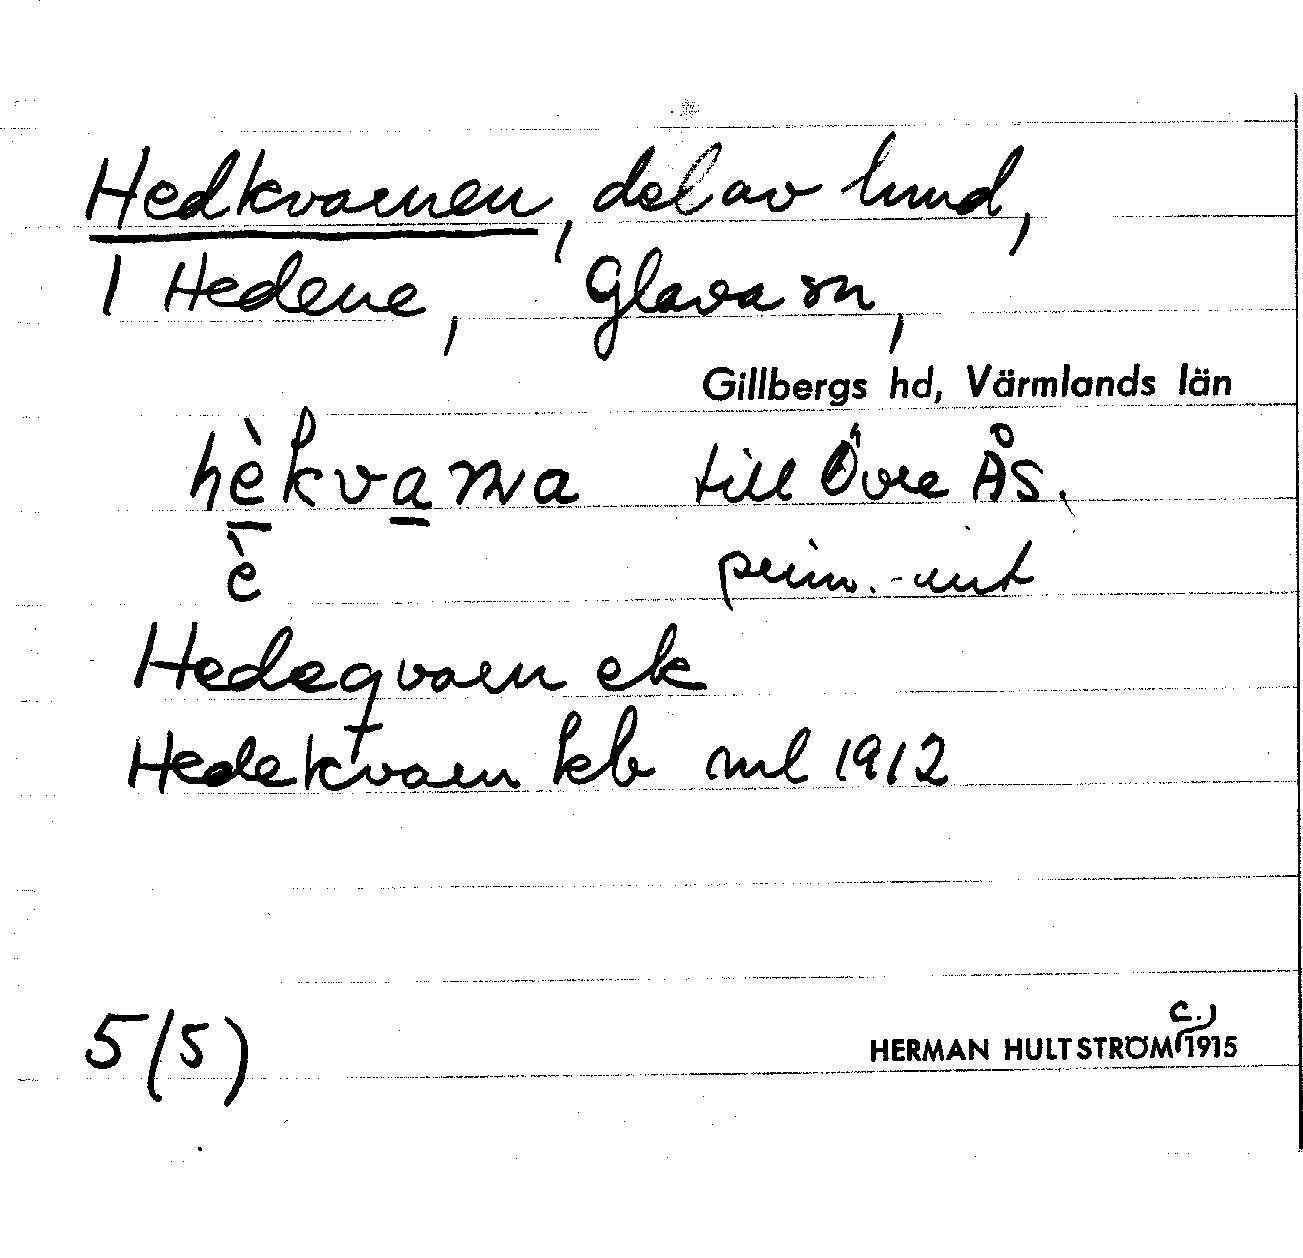 Hedkvarnen, del av lund,
1 Hedene, Glava sn,
Gillbergs hd, Värmlands län
hèkvaṇa till Övre Ås.
è prim.-uit
Hedeqvarn ek
Hedekvarn kb ml 1912
5(5) HERMAN HULTSTRÖM c. 1915